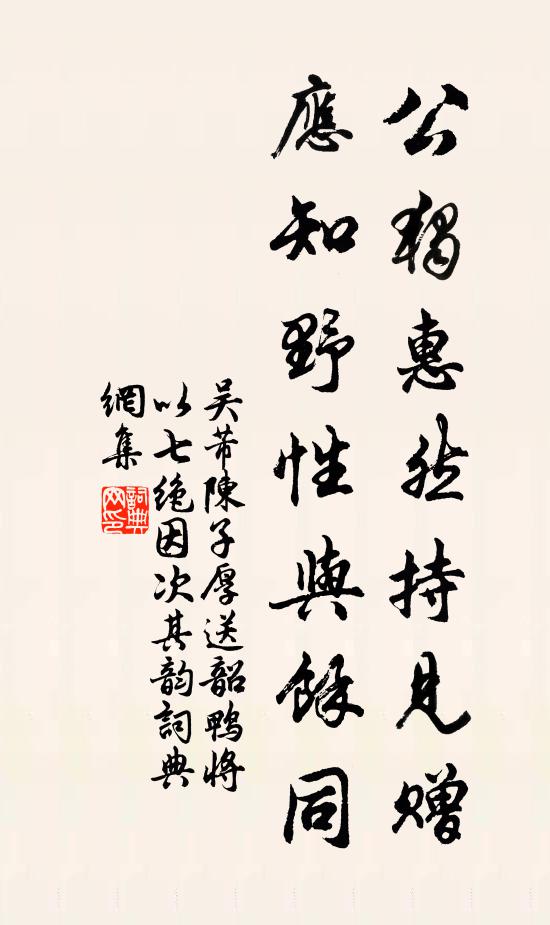 公獨惠然持見贈
應知野性與餘同
吴芾陳子厚送韶鴨將
以七绝因次其韵詞典
網集
詞典網印